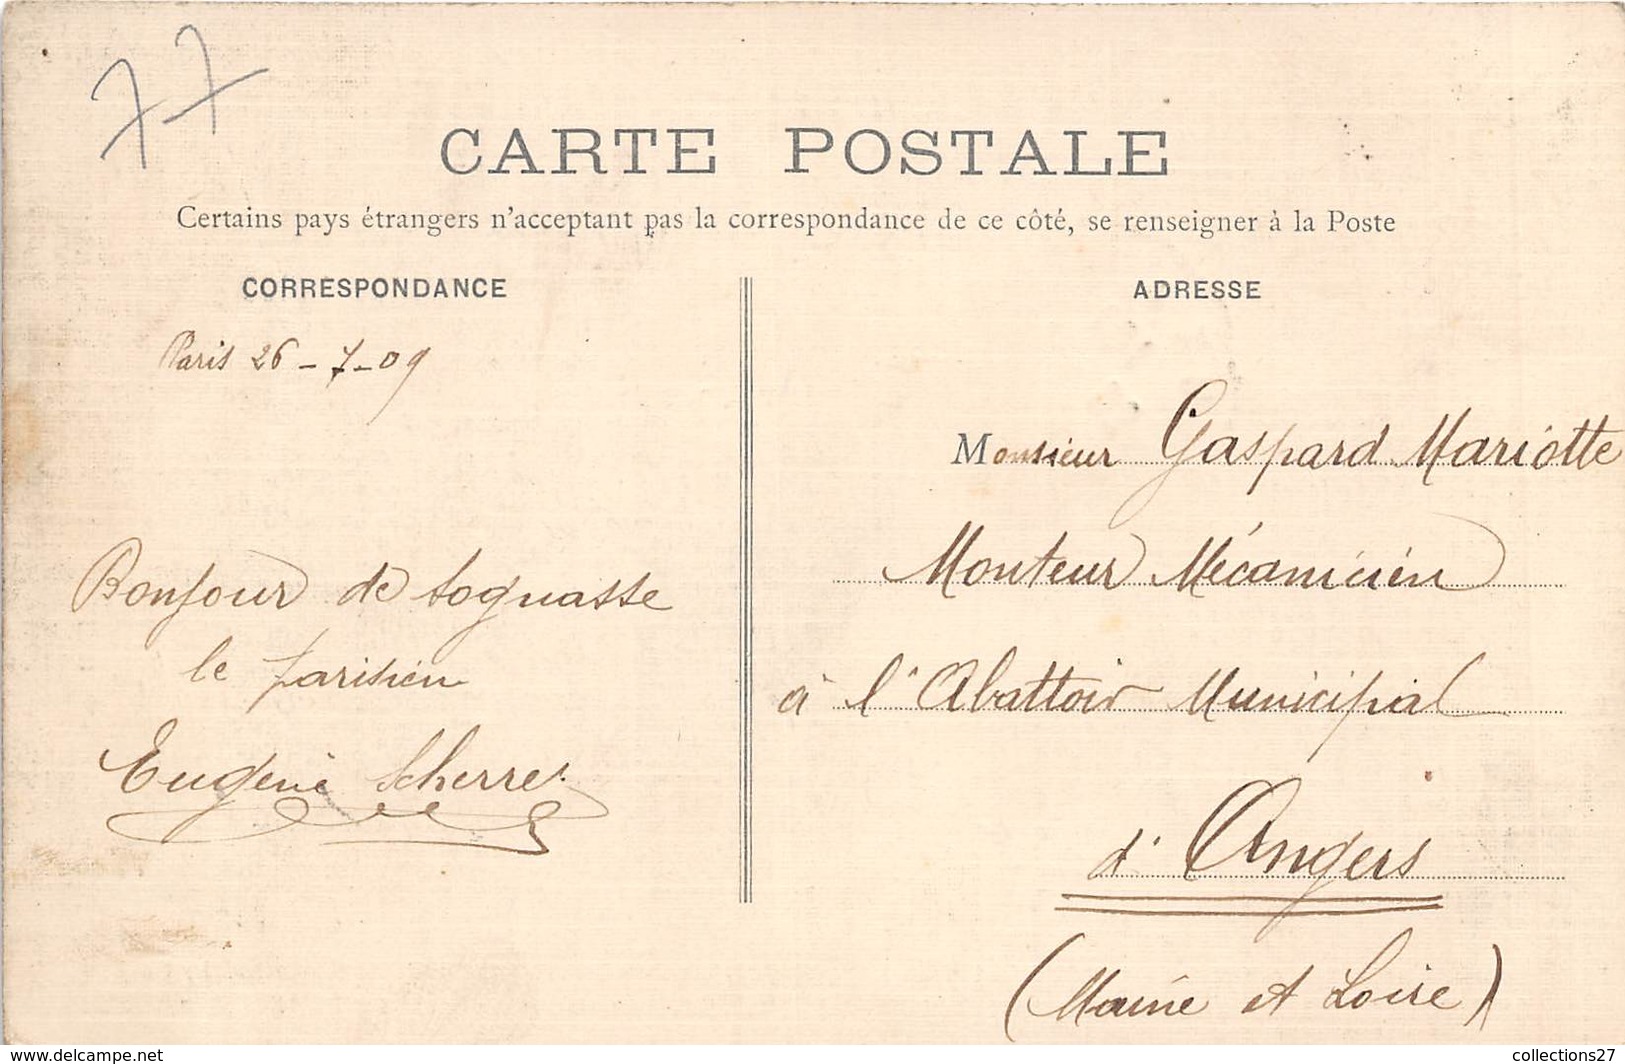 77
CARTE POSTALE
Certains pays étrangers n'acceptant pas la correspondance de ce côté, se renseigner à la Poste
CORRESPONDANCE
Paris 26-7-09
Bonjour de
le parisien
Eugène Scherrer
ADRESSE
Monsieur Gaspard Mariotte
Monteur Mécanicien
à l'Abattoir Municipal
d'Angers
(Maine et Loire)
www.delcampe.net
collections27